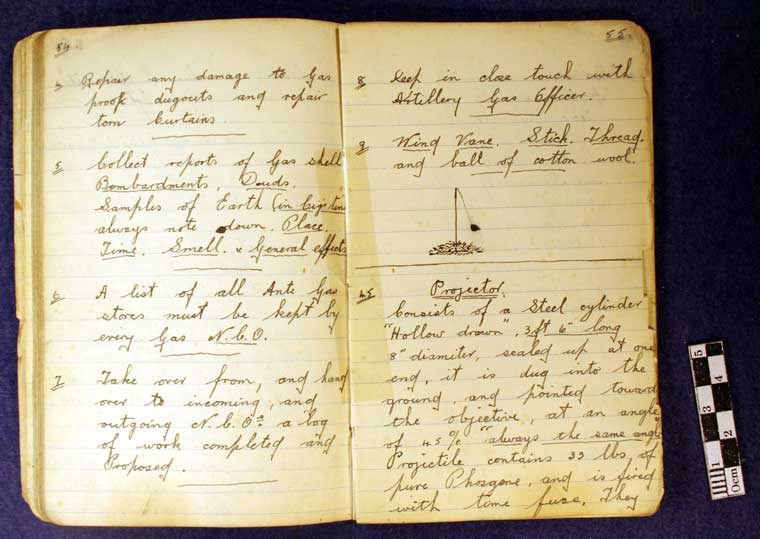 54.
Repair any damage to Gas
proof dugouts and repair
torn Curtains.
5 Collect reports of Gas shell
Bombardments, Douds.
Samples of Earth (in cig: tins
always note down. Place.
Time. Smell. & General effects
6 A list of all Anti Gas
stores must be kept by
every Gas N.C.O.
7 Take over from, and hand
over to incoming, and
outgoing N.C.Os a log
of work completed and
Proposed.
55.
8 Keep in close touch with
Artillery Gas Officer.
9 Wind Vane. Stick. Thread.
and ball of cotton wool.
45 Projector.
Consists of a Steel cylinder
"Hollow drawn", 3ft 6" long
8" diamiter, sealed up at one
end, it is dug into the
ground, and pointed toward
the objective, at an angle
of 45% "always the same angle"
Projectile contains 33 lbs, of
pure Phosgene, and is fired
with time fuse, They
5
4
3
2
1
0cm